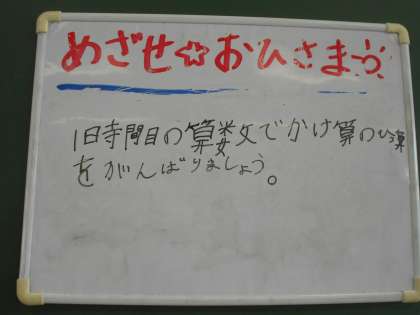 めざせ☆おひさま
1日寺間目の算数でかけ算のひっ算
をがんばりましょう。